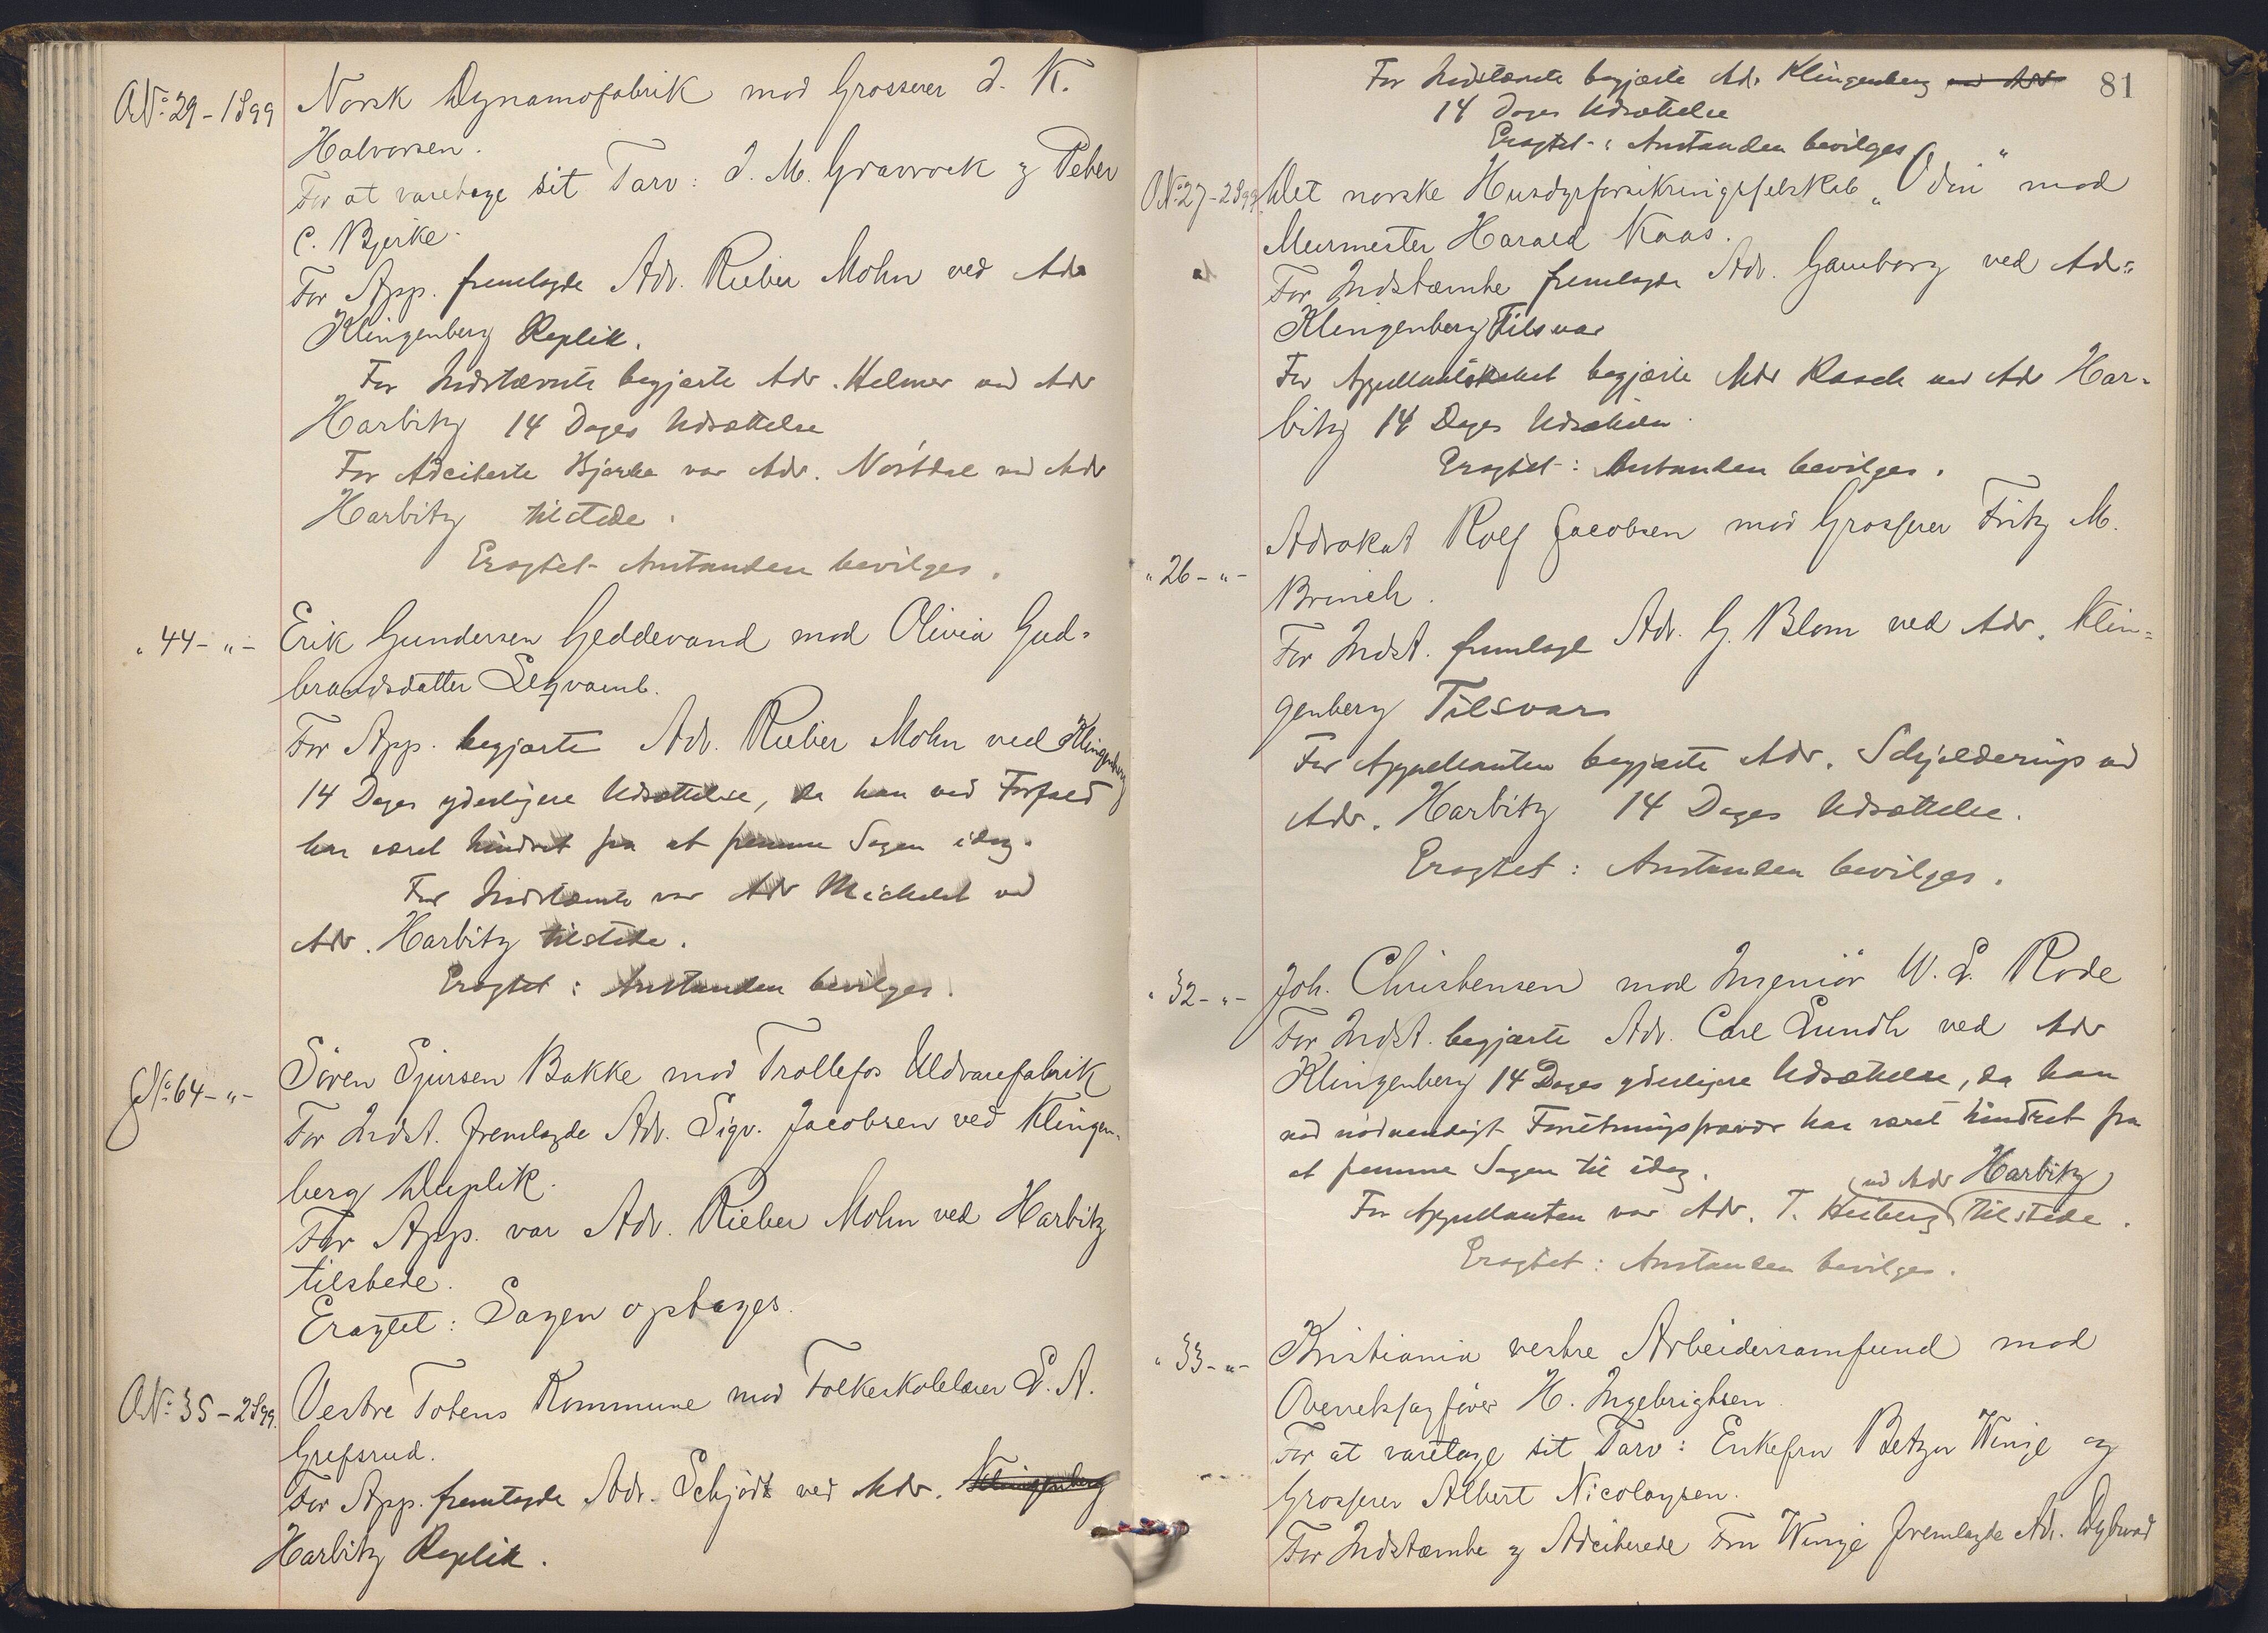 A№ 29 - 1899 Norsk Dynamofabrik mod Grosserer J. K.
Halvorsen.
For at varetage sit Tarv: J. M. Gravrock og Peter
C. Bjerke.
For App. fremlagde Adv. Rieber Mohn ved Adv
Klingenberg Replik.
For Indstævnte begjærte Adv. Helmer ved Adv
Harbitz 14 Dages Udsættelse
For Adciterte Bjerke var Adv. Nørstdal ved Adv
Harbitz tilstede.
Eragtet - Anstanden bevilges.
" 44 - " - Erik Gundersen Geddevand mod Olivia Gud-
brandsdatter Legvamb.
For App. begjærte Adv. Rieber Mohn ved Klingenberg
14 Dages yderligere Udsættelse, da han ved Forfald
har været hindret fra at fremme Sagen idag.
For Indstævnte var Adv Michelet ved
Adv. Harbitz tilstede.
Eragtet: Anstanden bevilges.
G№ 64 - " - Søren Sjursen Bakke mod Trollefos Uldvarefabrik
For Indst. fremlagde Adv. Sigv. Jacobsen ved Klingen-
berg Duplik.
For App. var Adv. Rieber Mohn ved Harbitz
tilstede.
Eragtet: Sagen optages.
A№ 35 - 2899. Vestre Totens Kommune mod Folkeskolelærer L. A.
Grefsrud.
For App. fremlagde Adv. Schjødt ved Adv. Klingenberg
Harbitz Replik.
81
For Indstævnte begjærte Adv. Klingenberg ved Adv
14 Dages Udsættelse
Eragtet: Anstanden bevilges
A№ 27 - 2899. Det norske Husdyrforsikringsselskab "Odin" mod
Murmester Harald Kaas.
For Indstævnte fremlagde Adv. Gamborg ved Adv.
Klingenberg Tilsvar
For Appellantskabet begjærte Adv Rasch ved Adv Har-
bitz 14 Dages Udsættelse.
Eragtet: Anstanden bevilges.
" 26 - " - Advokat Rolf Jacobsen mod Grosserer Fritz M.
Brinch.
For Indst. fremlagde Adv. G. Blom ved Adv. Klin-
genberg Tilsvar
For Appellanten begjærte Adv. Schjelderup ved
Adv. Harbitz 14 Dages Udsættelse.
Eragtet: Anstanden bevilges.
" 32 - " - Joh. Christensen mod Ingeniør W. L. Rode
For Indst. begjærte Adv. Carl Lundh ved Adv
Klingenberg 14 Dages yderligere Udsættelse, da han
ved nødvendigt Forretningsfravær har været hindret fra
at fremme Sagen til idag.
ved Adv Harbitz
For Appellanten var Adv. T. Heiberg tilstede.
Eragtet: Anstanden bevilges.
" 33 - " - Kristiania vestre Arbeidersamfund mod
Overretssagfører H. Ingebrigtsen.
For at varetage sit Tarv: Enkefru Betzy Winge og
Grosserer Albert Nicolaysen.
For Indstævnte og Adciterede Fru Winge fremlagde Adv. Dybwad